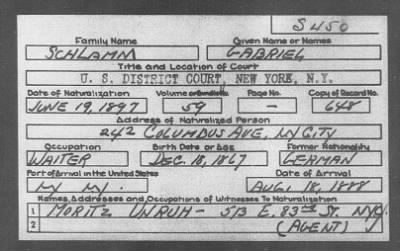 S 450
Family Name Given Name or Names
SCHLAMM GABRIEL
Title and Location of Court
U. S. DISTRICT COURT, NEW YORK, N.Y.
Date of Naturalization Volume or Bundle No. Page No. Copy of Record No.
JUNE 19, 1897 59 — 648
Address of Naturalized Person
242 COLUMBUS AVE, NY CITY
Occupation Birth Date or Age Former Nationality
WAITER DEC. 18, 1867 GERMAN
Port of Arrival in the United States Date of Arrival
NY NY. AUG. 18, 1888
Names, Addresses and Occupations of Witnesses To Naturalization
1 MORITZ UNRUH - 513 E. 83rd St. NYC.
2 (AGENT)